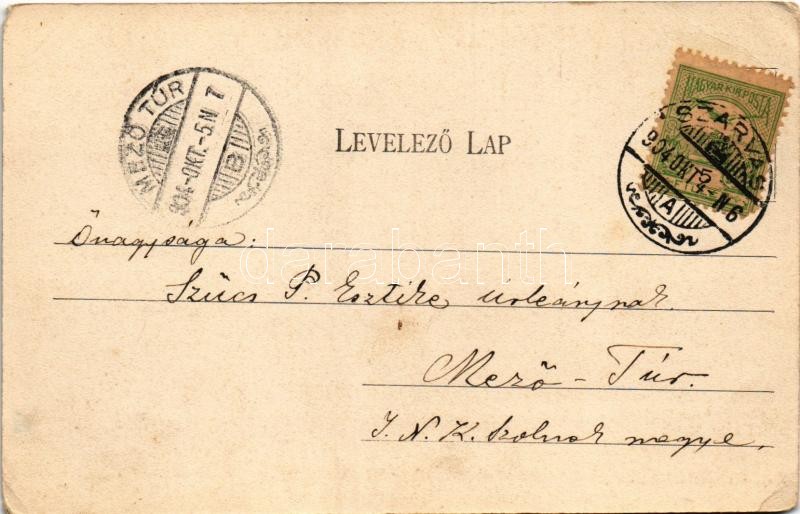 LEVELEZŐ LAP
MEZŐ TÚR
904·OKT.-5.N 7
B
MAGYAR KIR. POSTA
SZARVAS
904·OKT. 5 N6
A
Őnagysága:
Szűcs P. Esztike úrleánynak.
Mező-Túr.
J. N. K. Szolnok megye.
darabanth